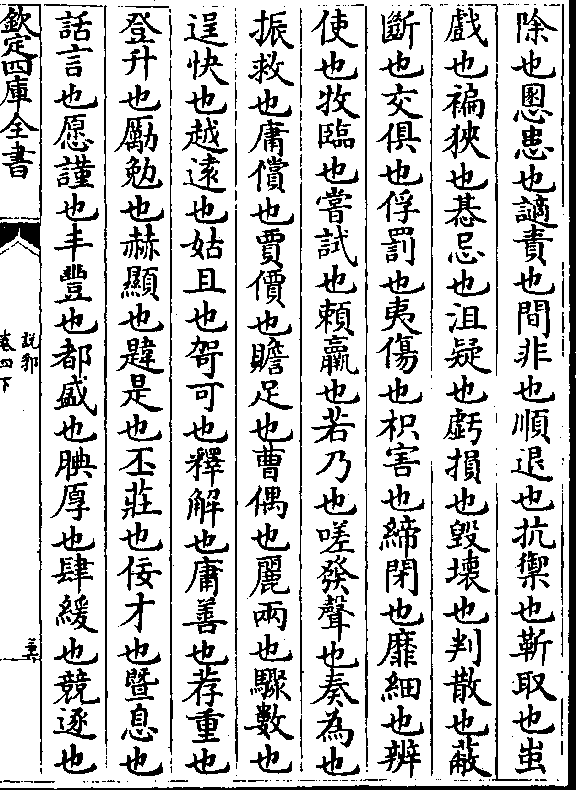 除也慁患也謫責也間非也順退也抗禦也靳取也蚩
戲也褊狹也惎忌也沮疑也虧損也毀壞也判散也蔽
斷也交俱也俘罰也夷傷也枳害也締閉也靡細也辨
使也牧臨也嘗試也賴贏也若乃也嗟發聲也奏為也
振救也庸償也賈價也贍足也曹偶也麗兩也驟數也
逞快也越遠也姑且也哿可也釋解也庸善也荐重也
登升也勵勉也赫顯也韙是也丕莊也佞才也暨息也
話言也愿謹也丰豐也都盛也腆厚也肆緩也競逐也
欽定四庫全書
說郛
卷四下